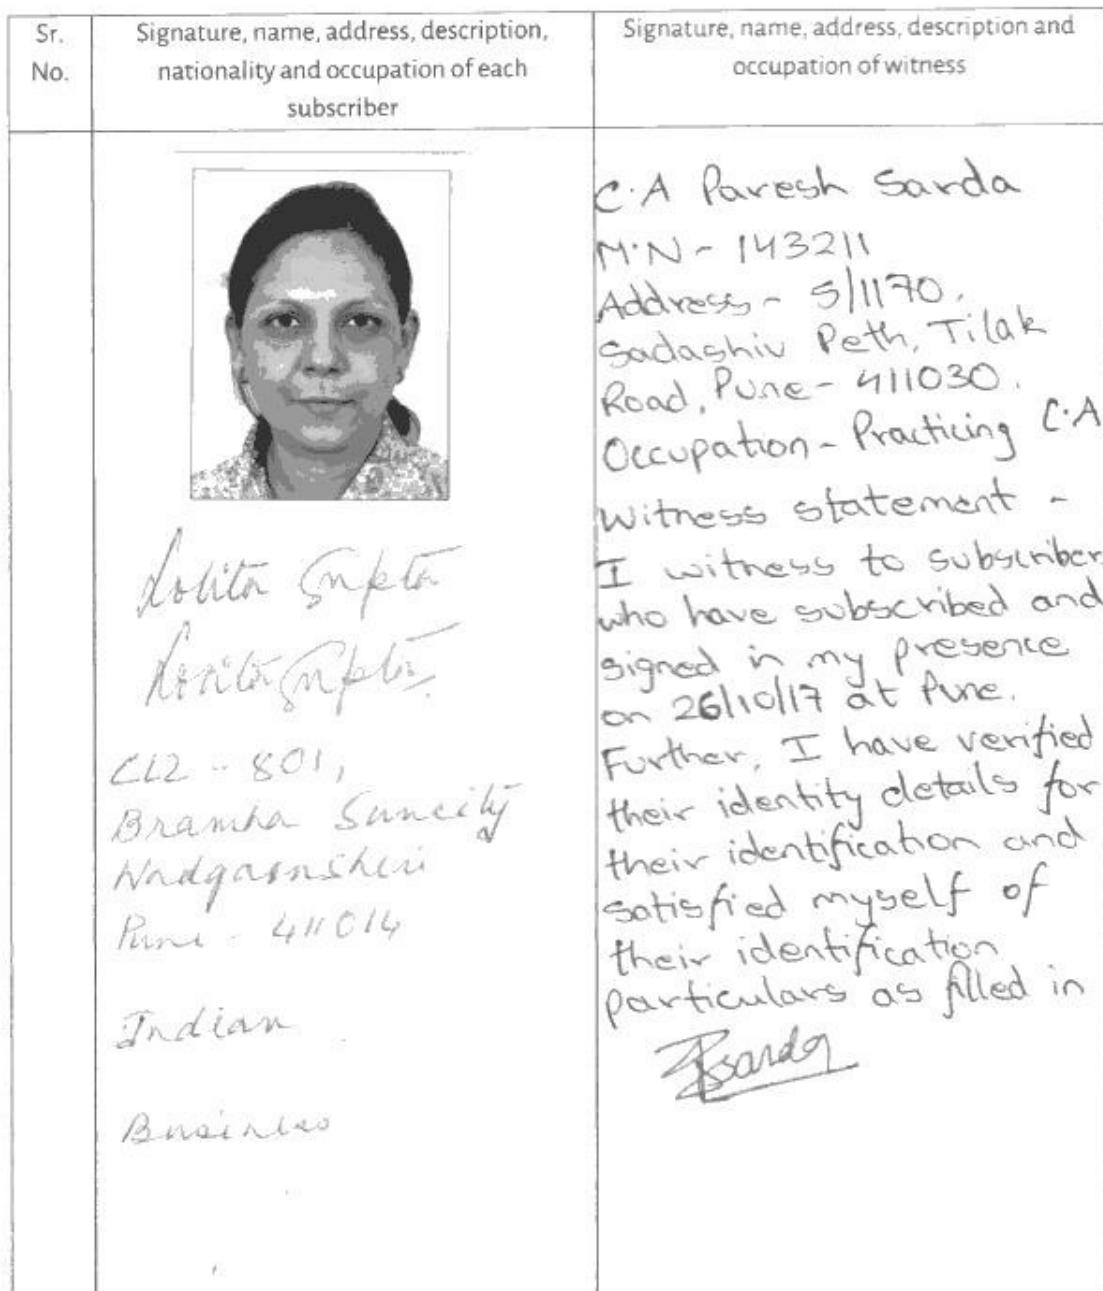 Sr.
No.
Signature, name, address, description,
nationality and occupation of each
subscriber
Signature, name, address, description and
occupation of witness
Lolita Gupta
Lolita Gupta
CL2 - 801,
Bramha Suncity
Wadgaonsheri
Pune - 411014
Indian
Business
C.A Paresh Sarda
M.N - 143211
Address - 5/1170,
Sadashiv Peth, Tilak
Road, Pune - 411030.
Occupation - Practicing C.A
Witness statement -
I witness to subscriber
who have subscribed and
signed in my presence
on 26/10/17 at Pune.
Further, I have verified
their identity details for
their identification and
satisfied myself of
their identification
particulars as filled in
PSsarda